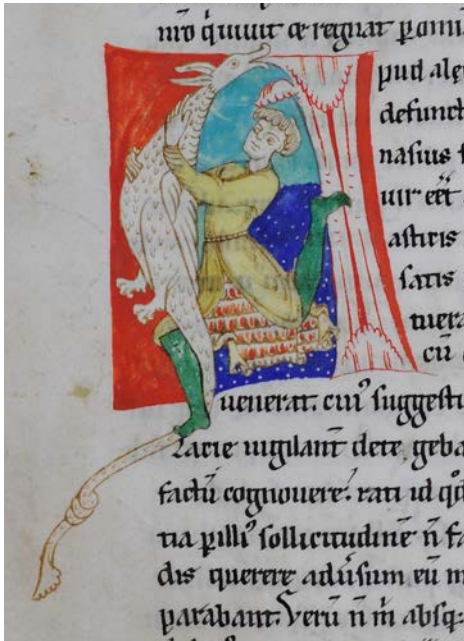 nr̄o qͥ uiuit ⁊ regnat ꝑ omīa
A
pud alex
defunct
nasius
uir eēt
astiris
satis
tuera
cū
uenerat. cuiꝰ suggestu
uigilant̄ dete geba
factū cognouere. rati id qd̄
tia ꝑ illiꝰ sollicitudinē n̄ fa
dis querere aduīsum eū m
parabant. Verū n̄ m absq: